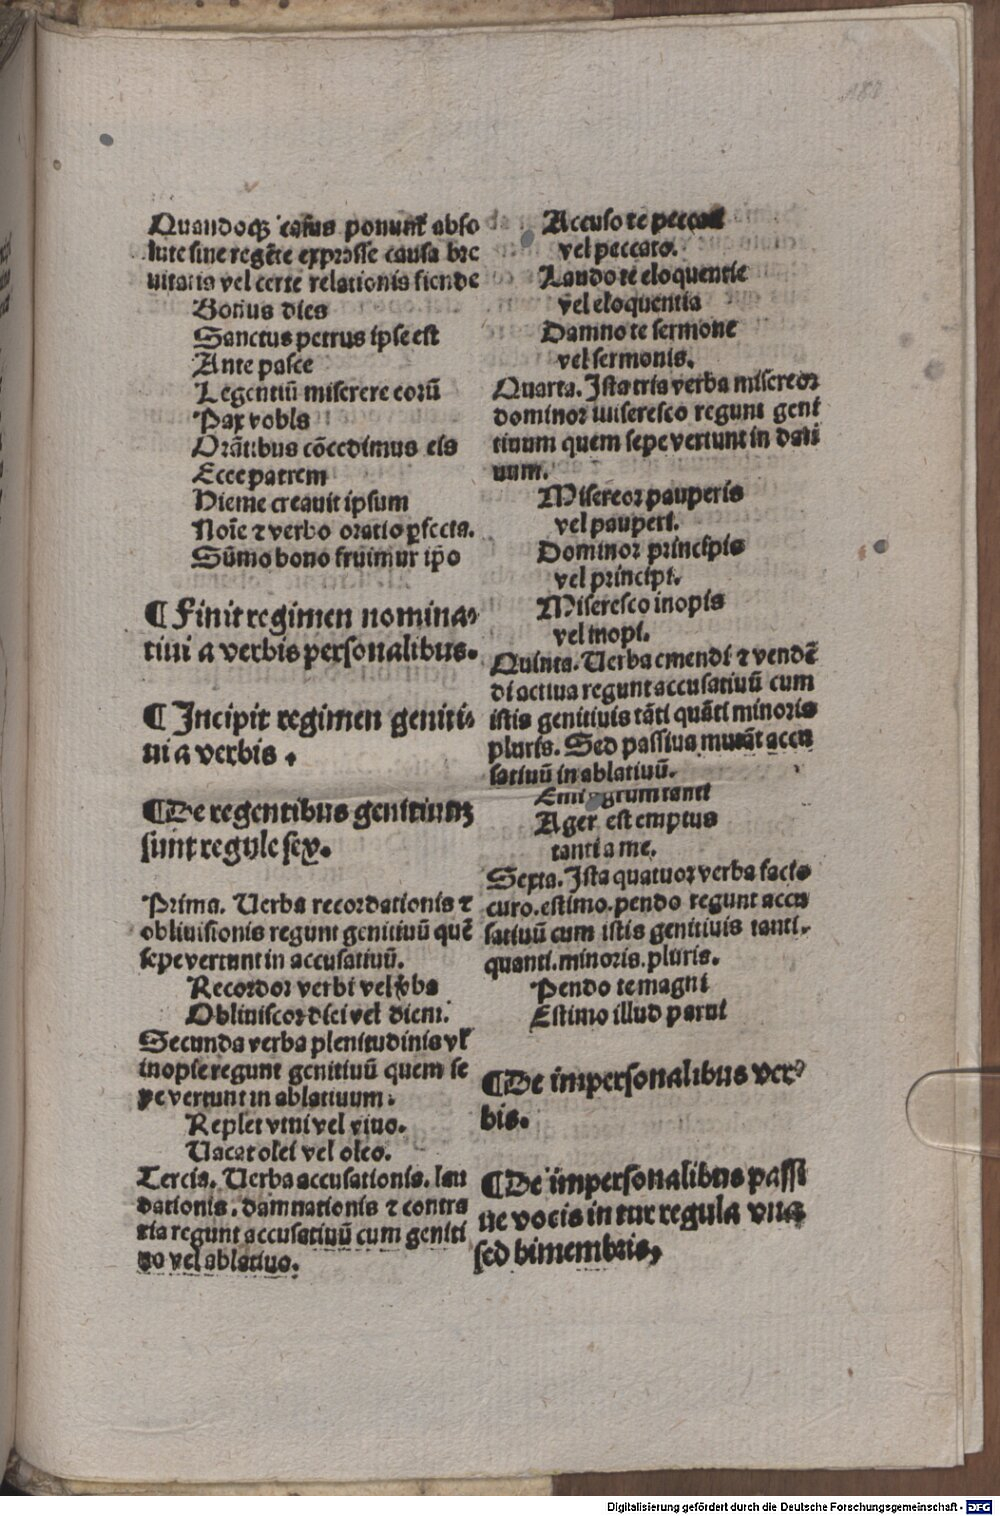 Quandoqȝ casus ponunt᷑ abso
lute sine regēte expresse causa bre
uitatis vel certe relationis fiende
Bonus dies
Sanctus petrus ipse est
Ante pasce
Legentiū miserere eorū
Pax vobis
Orātibus cōcedimus eis
Ecce patrem
Hieme creauit ipsum
Noīe ⁊ verbo oratio ꝑfecta.
Sūmo bono fruimur ip̄o
¶ Finit regimen nomina-
tiui a verbis personalibus.
¶ Incipit regimen geniti-
ui a verbis .
¶ De regentibus genitiuuȝ
sunt regule sex.
Prima. Uerba recordationis ⁊
obliuisionis regunt genitiuū quē
sepe vertunt in accusatiuū.
Recordor verbi vel v̄ba
Obliuiscor diei vel diem.
Secunda verba plenitudinis vl̓
inopie regunt genitiuū quem se
pe vertunt in ablatiuum.
Replet vini vel vino.
Uacat olei vel oleo.
Tercia. Uerba accusationis. lau
dationis. damnationis ⁊ contra
ria regunt accusatiuū cum geniti
uo vel ablatiuo.
Accuso te peccati
vel peccato.
Laudo te eloquentie
vel eloquentia
Damno te sermone
vel sermonis.
Quarta. Ista tria verba misereor
dominor miseresco regunt geni
tiuum quem sepe vertunt in dati
uum.
Misereor pauperis
vel pauperi.
Dominor principis
vel principi.
Miseresco inopis
vel inopi.
Quinta. Uerba emendi ⁊ vendē
di actiua regunt accusatiuū cum
istis genitiuis tāti quāti minoris
pluris. Sed passiua mutāt accu
satiuū in ablatiuū.
Emi agrum tanti
Ager est emptus
tanti a me.
Sexta. Ista quatuor verba facio
curo. estimo. pendo regunt accu
satiuū cum istis genitiuis tanti.
quanti. minoris. pluris.
Pendo te magni
Estimo illud parui
¶ De impersonalibus ver-
bis.
¶ De impersonalibus passi
ue vocis in tur regula vna
sed bimembris,
Digitalisierung gefördert durch die Deutsche Forschungsgemeinschaft - DFG